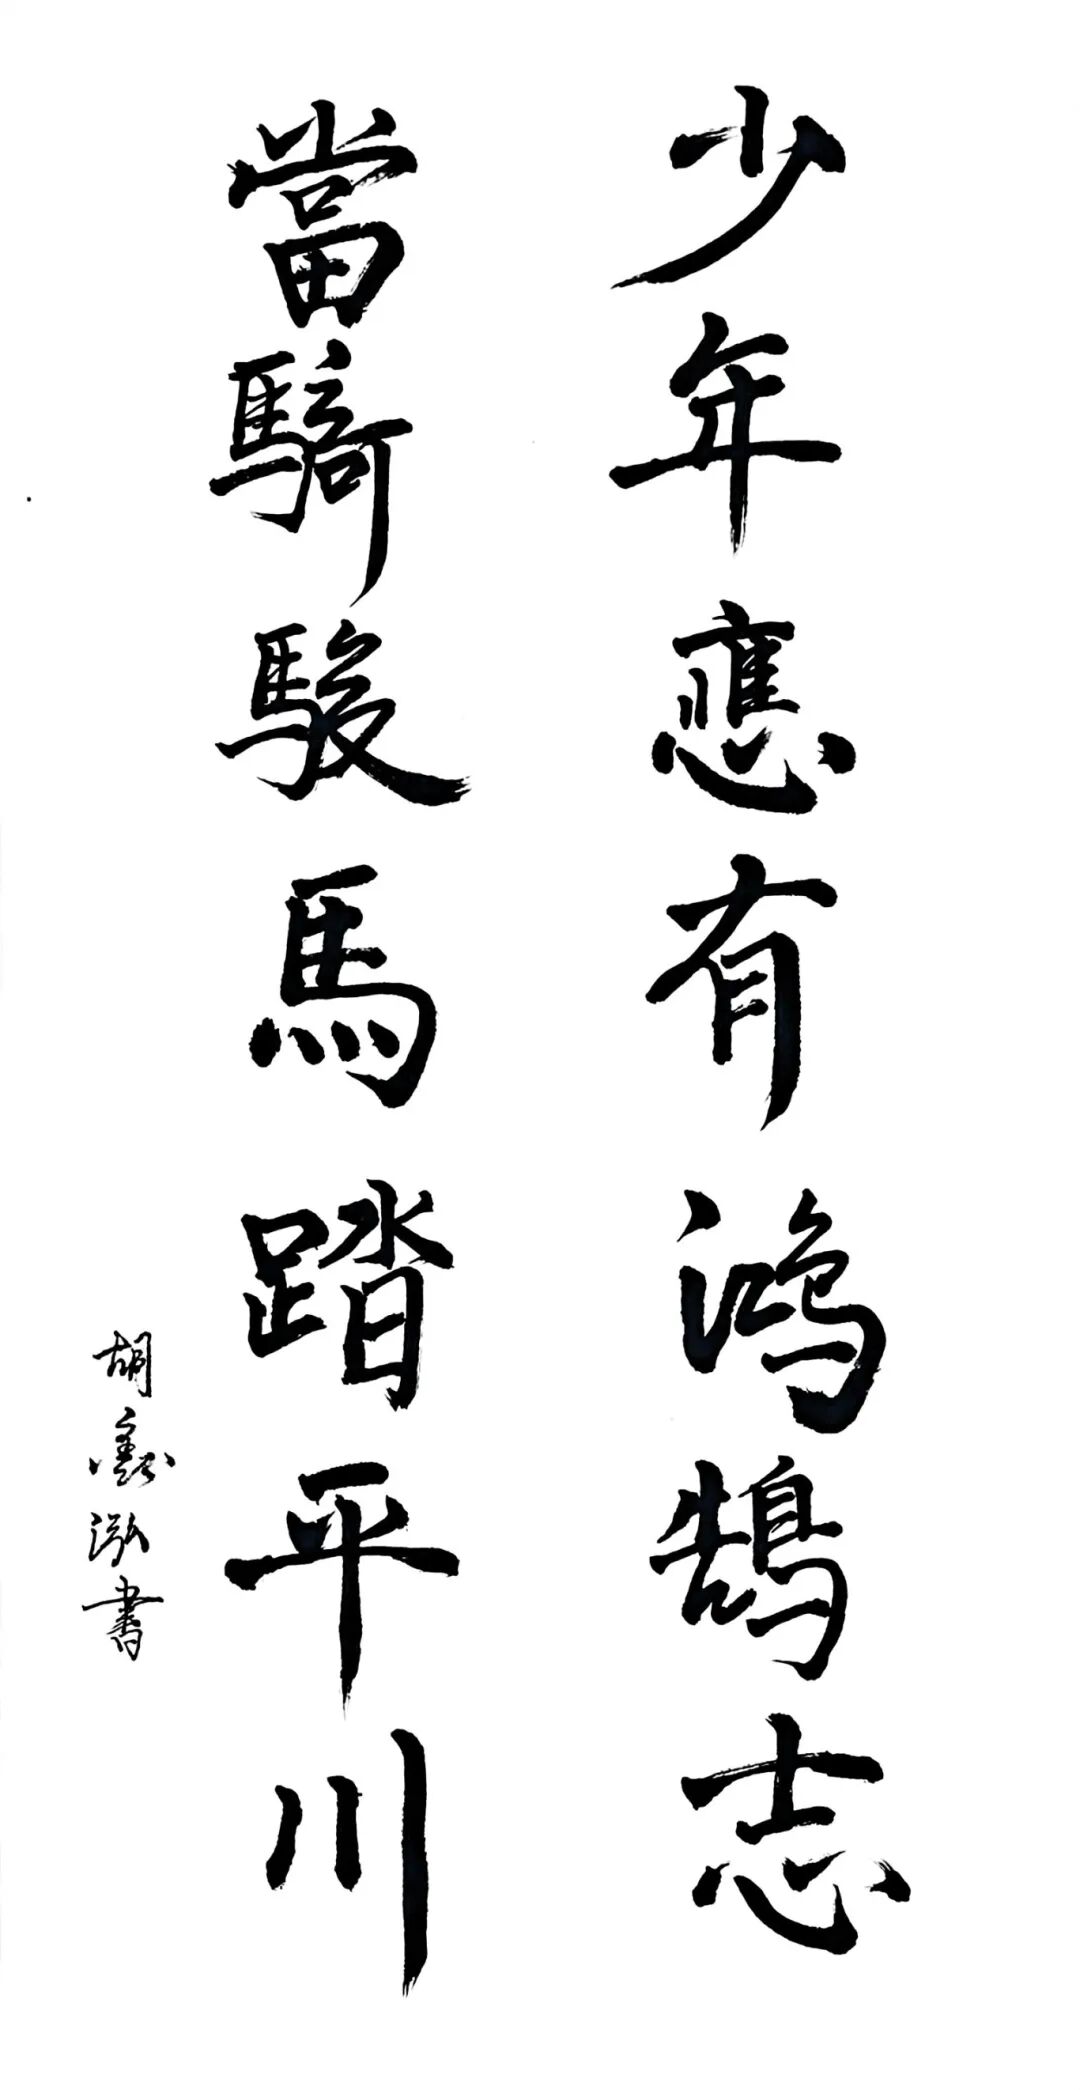 少年應有鸿鹄志
當騎駿馬踏平川
胡泓書